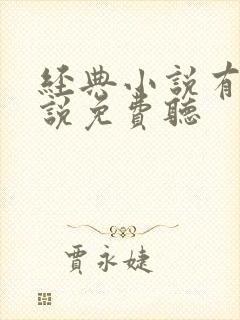 經典小說有
說免費聽
賈永婕